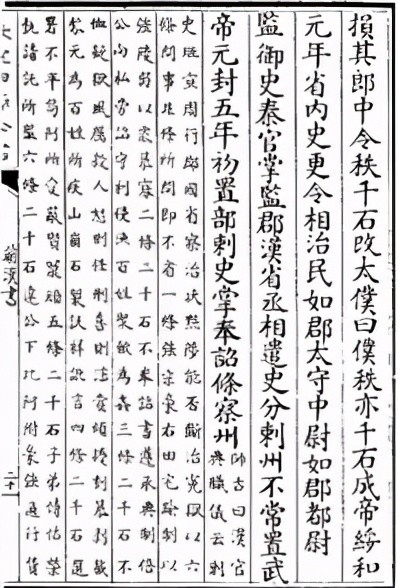 損其郎中令秩千石改太僕曰僕秩亦千石成帝綏和
元年省內史更令相治民如郡太守中尉如郡都尉
監御史秦官掌監郡漢省丞相遣史分刺州不常置武
帝元封五年初置部刺史掌奉詔條察州
師古曰漢官
典職儀云刺
史班宣周行郡國省察治狀黜陟能否斷治冤獄以六
條問事非條所問即不省一條強宗豪右田宅踰制以
強陵弱以衆暴寡二條二千石不奉詔書遵承典制倍
公向私旁詔守利侵漁百姓聚斂為姦三條二千石不
卹疑獄風厲殺人怒則任刑喜則淫賞煩擾刻暴剝截
黎元為百姓所疾山崩石裂訞祥訛言四條二千石選
署不平苟阿所愛蔽賢寵頑五條二千石子弟恃怙榮
埶請託所監六條二千石違公下比阿附豪強通行貨
前漢書